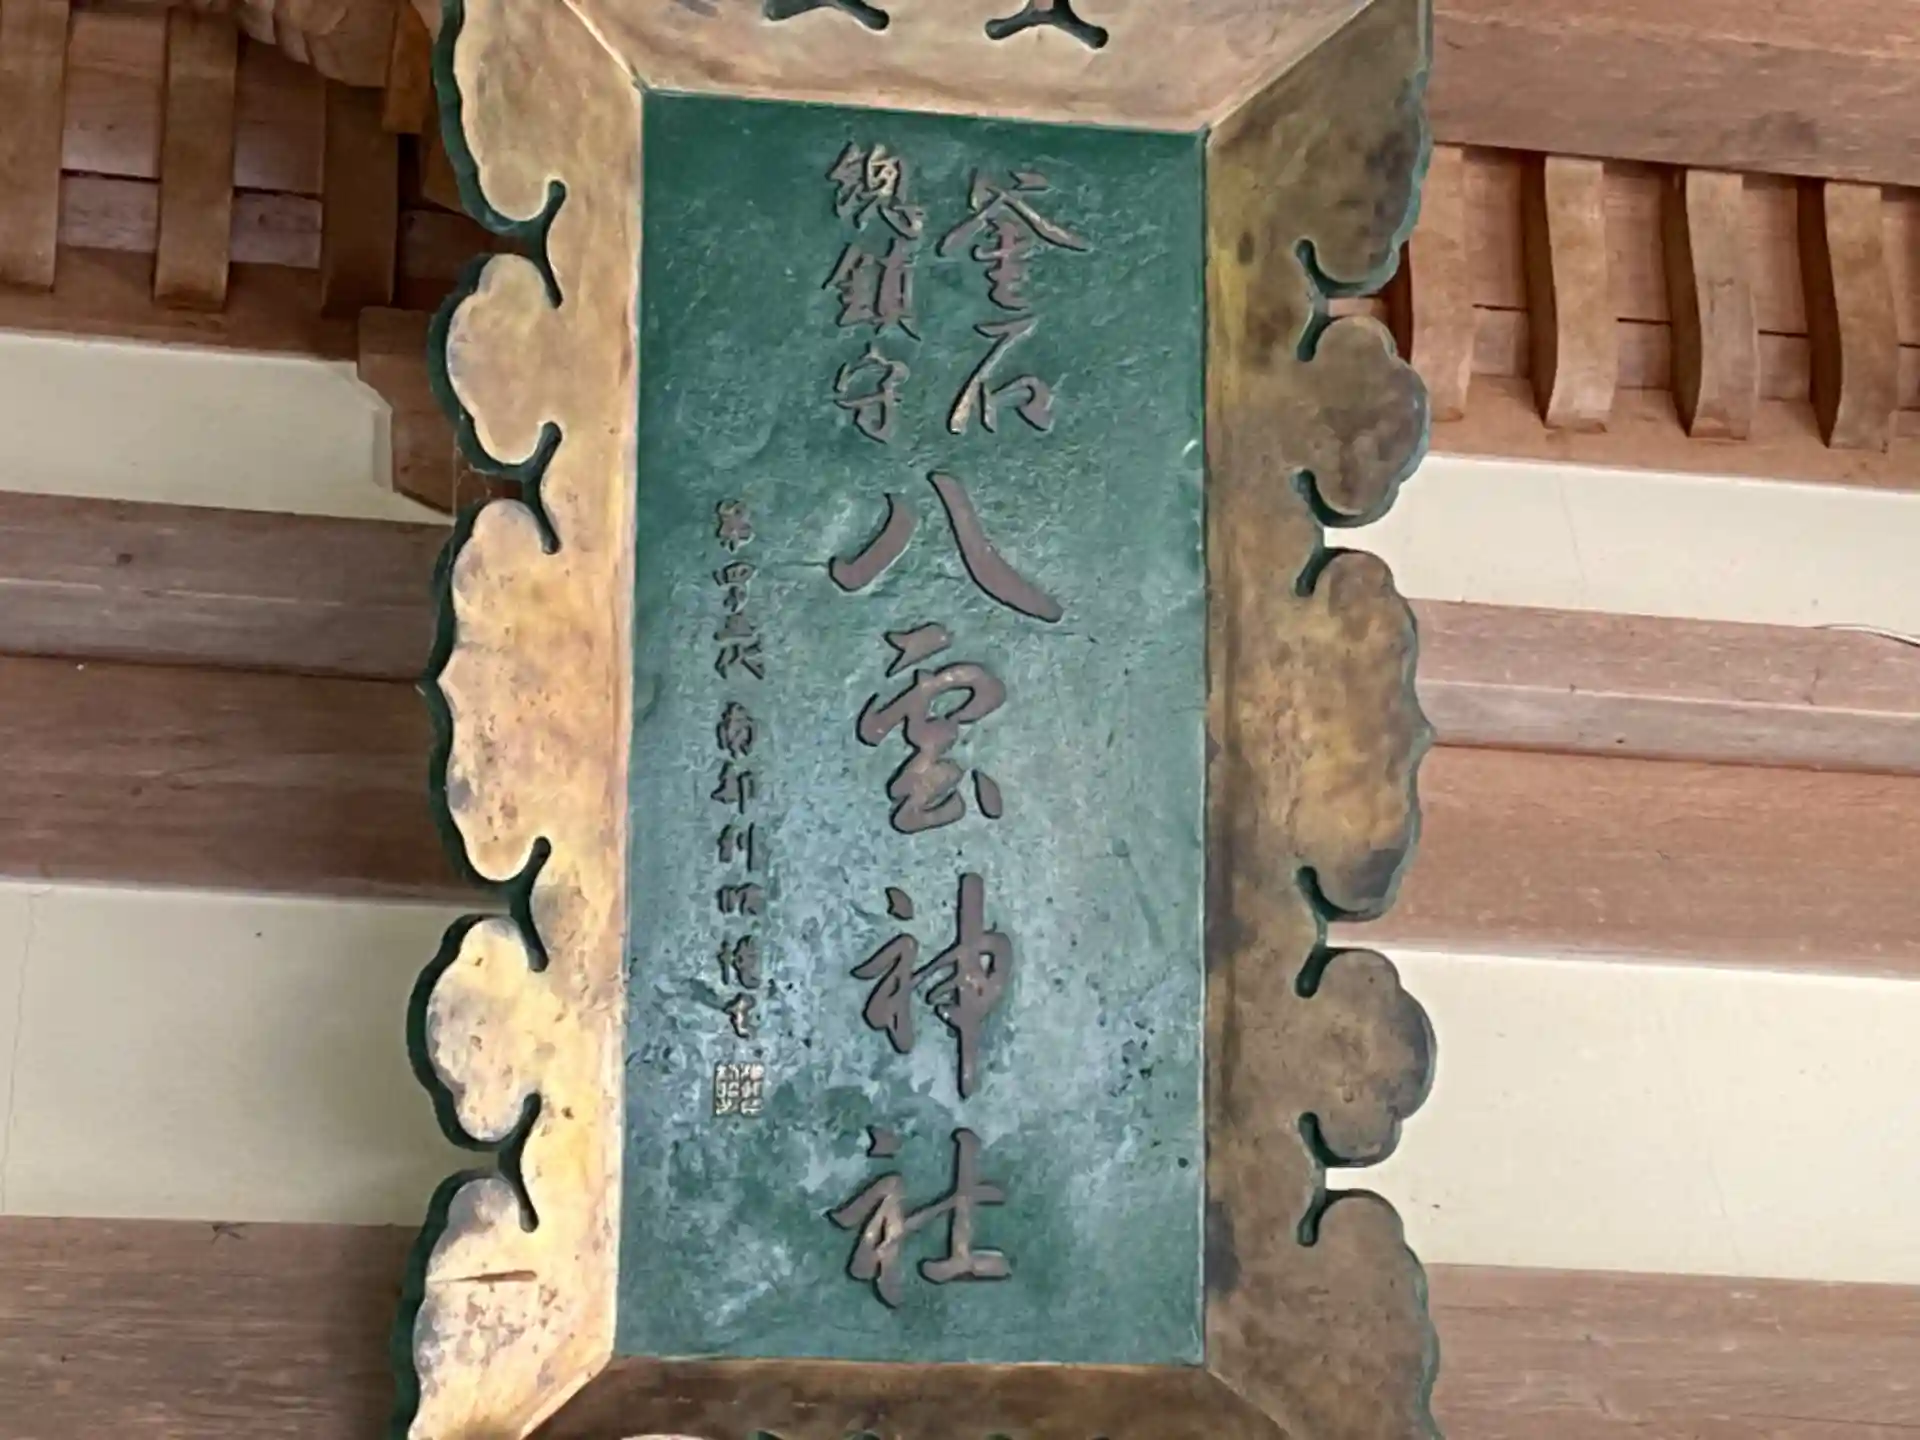 釜石
總鎮守
八雲神社
第四十五代 南部利昭謹書